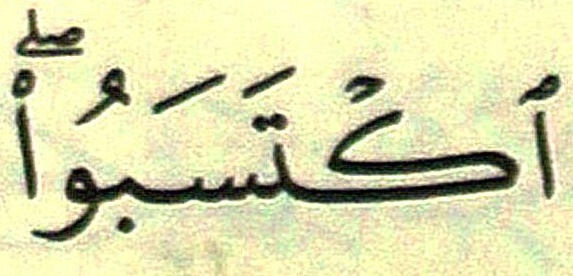 ٱكْتَسَبُوا۟ۖ